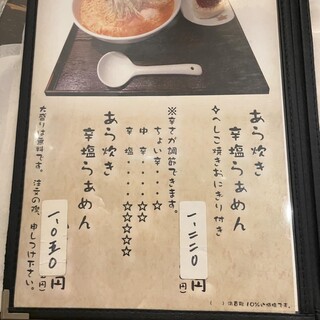 あら炊き
辛塩らぁめん
☆へしこ焼きおにぎり付き
一、二二〇円
※辛さが調節できます。
ちょい辛・・・・☆
中辛・・・・☆☆☆
辛塩・・・☆☆☆☆☆
あら炊き
辛塩らぁめん
一、〇五〇円
大盛りは無料です。注文の際、申しつけ下さい。